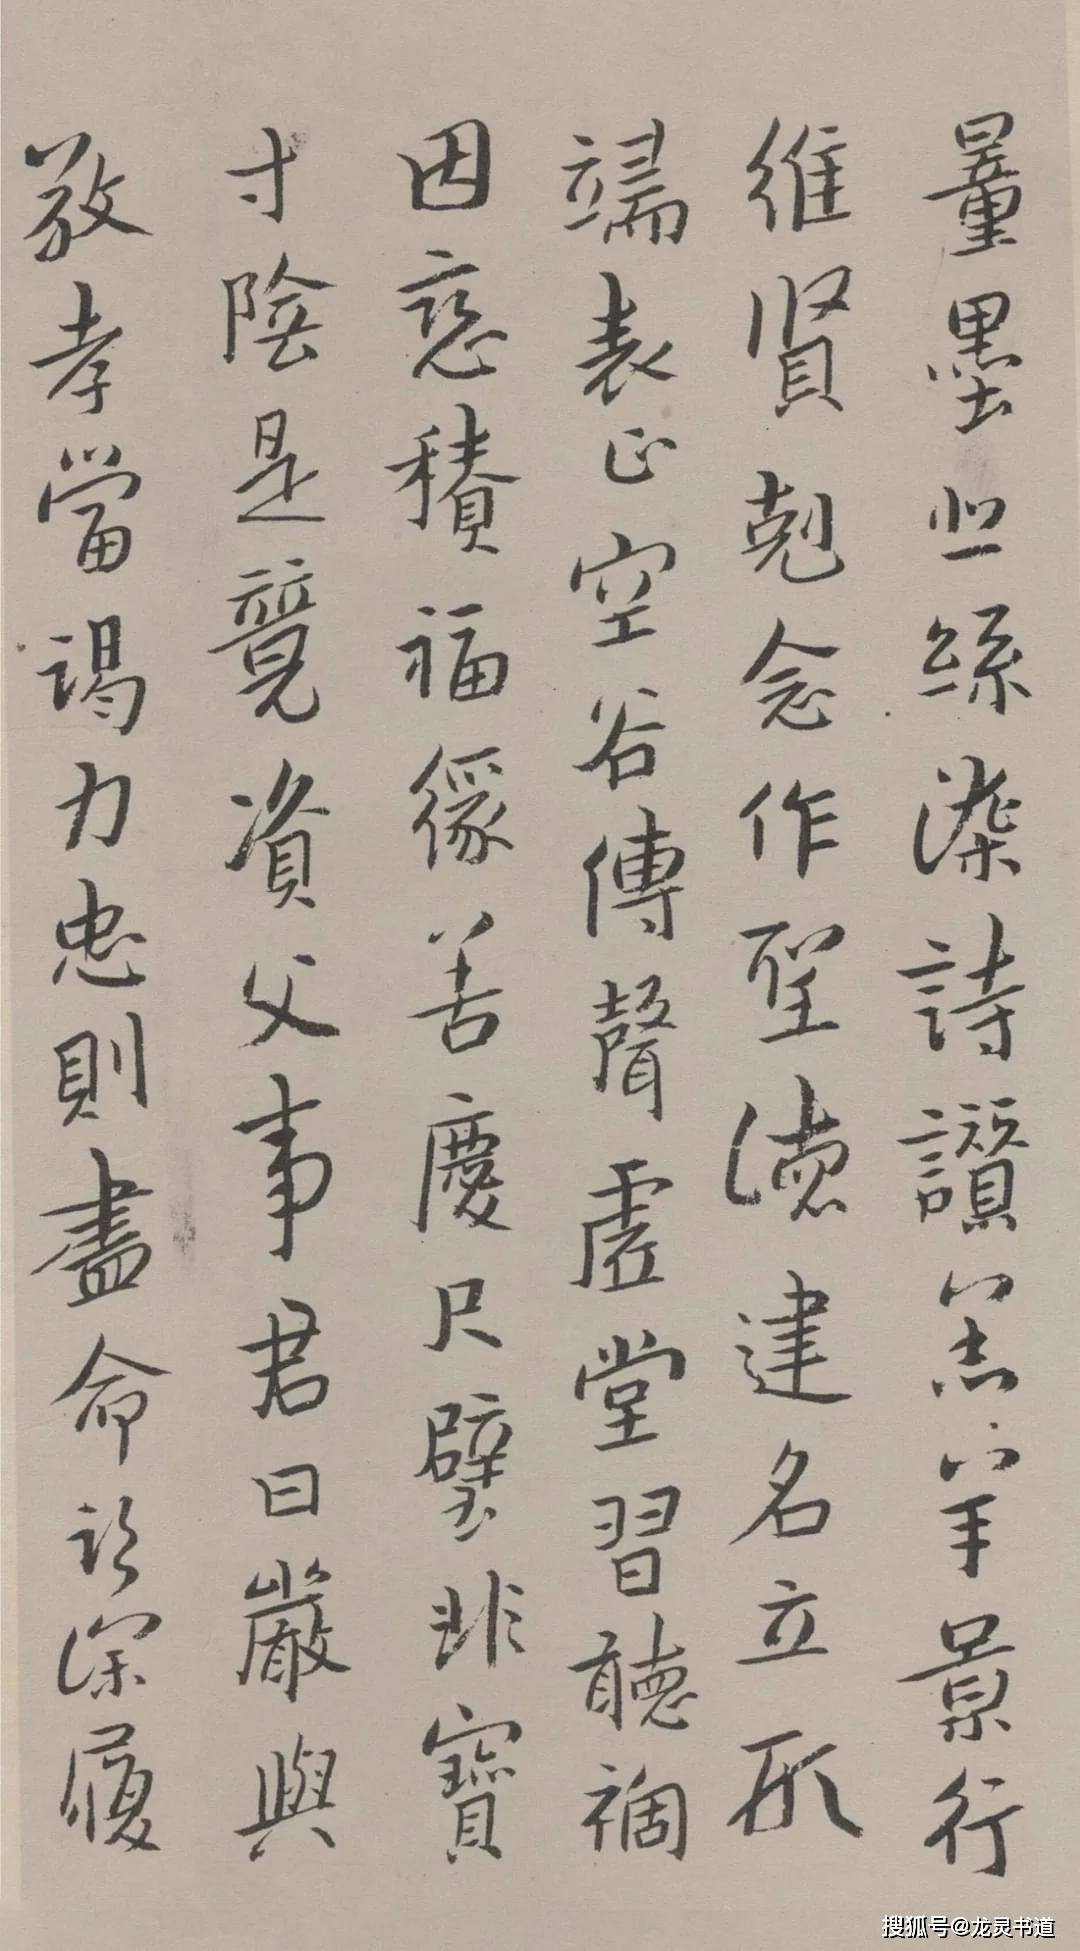 量墨悲絲染詩讚羔羊景行
維賢剋念作聖德建名立形
端表正空谷傳聲虛堂習聽禍
因惡積福緣善慶尺璧非寶
寸陰是競資父事君曰嚴與
敬孝當竭力忠則盡命臨深履
搜狐号@龙灵书道